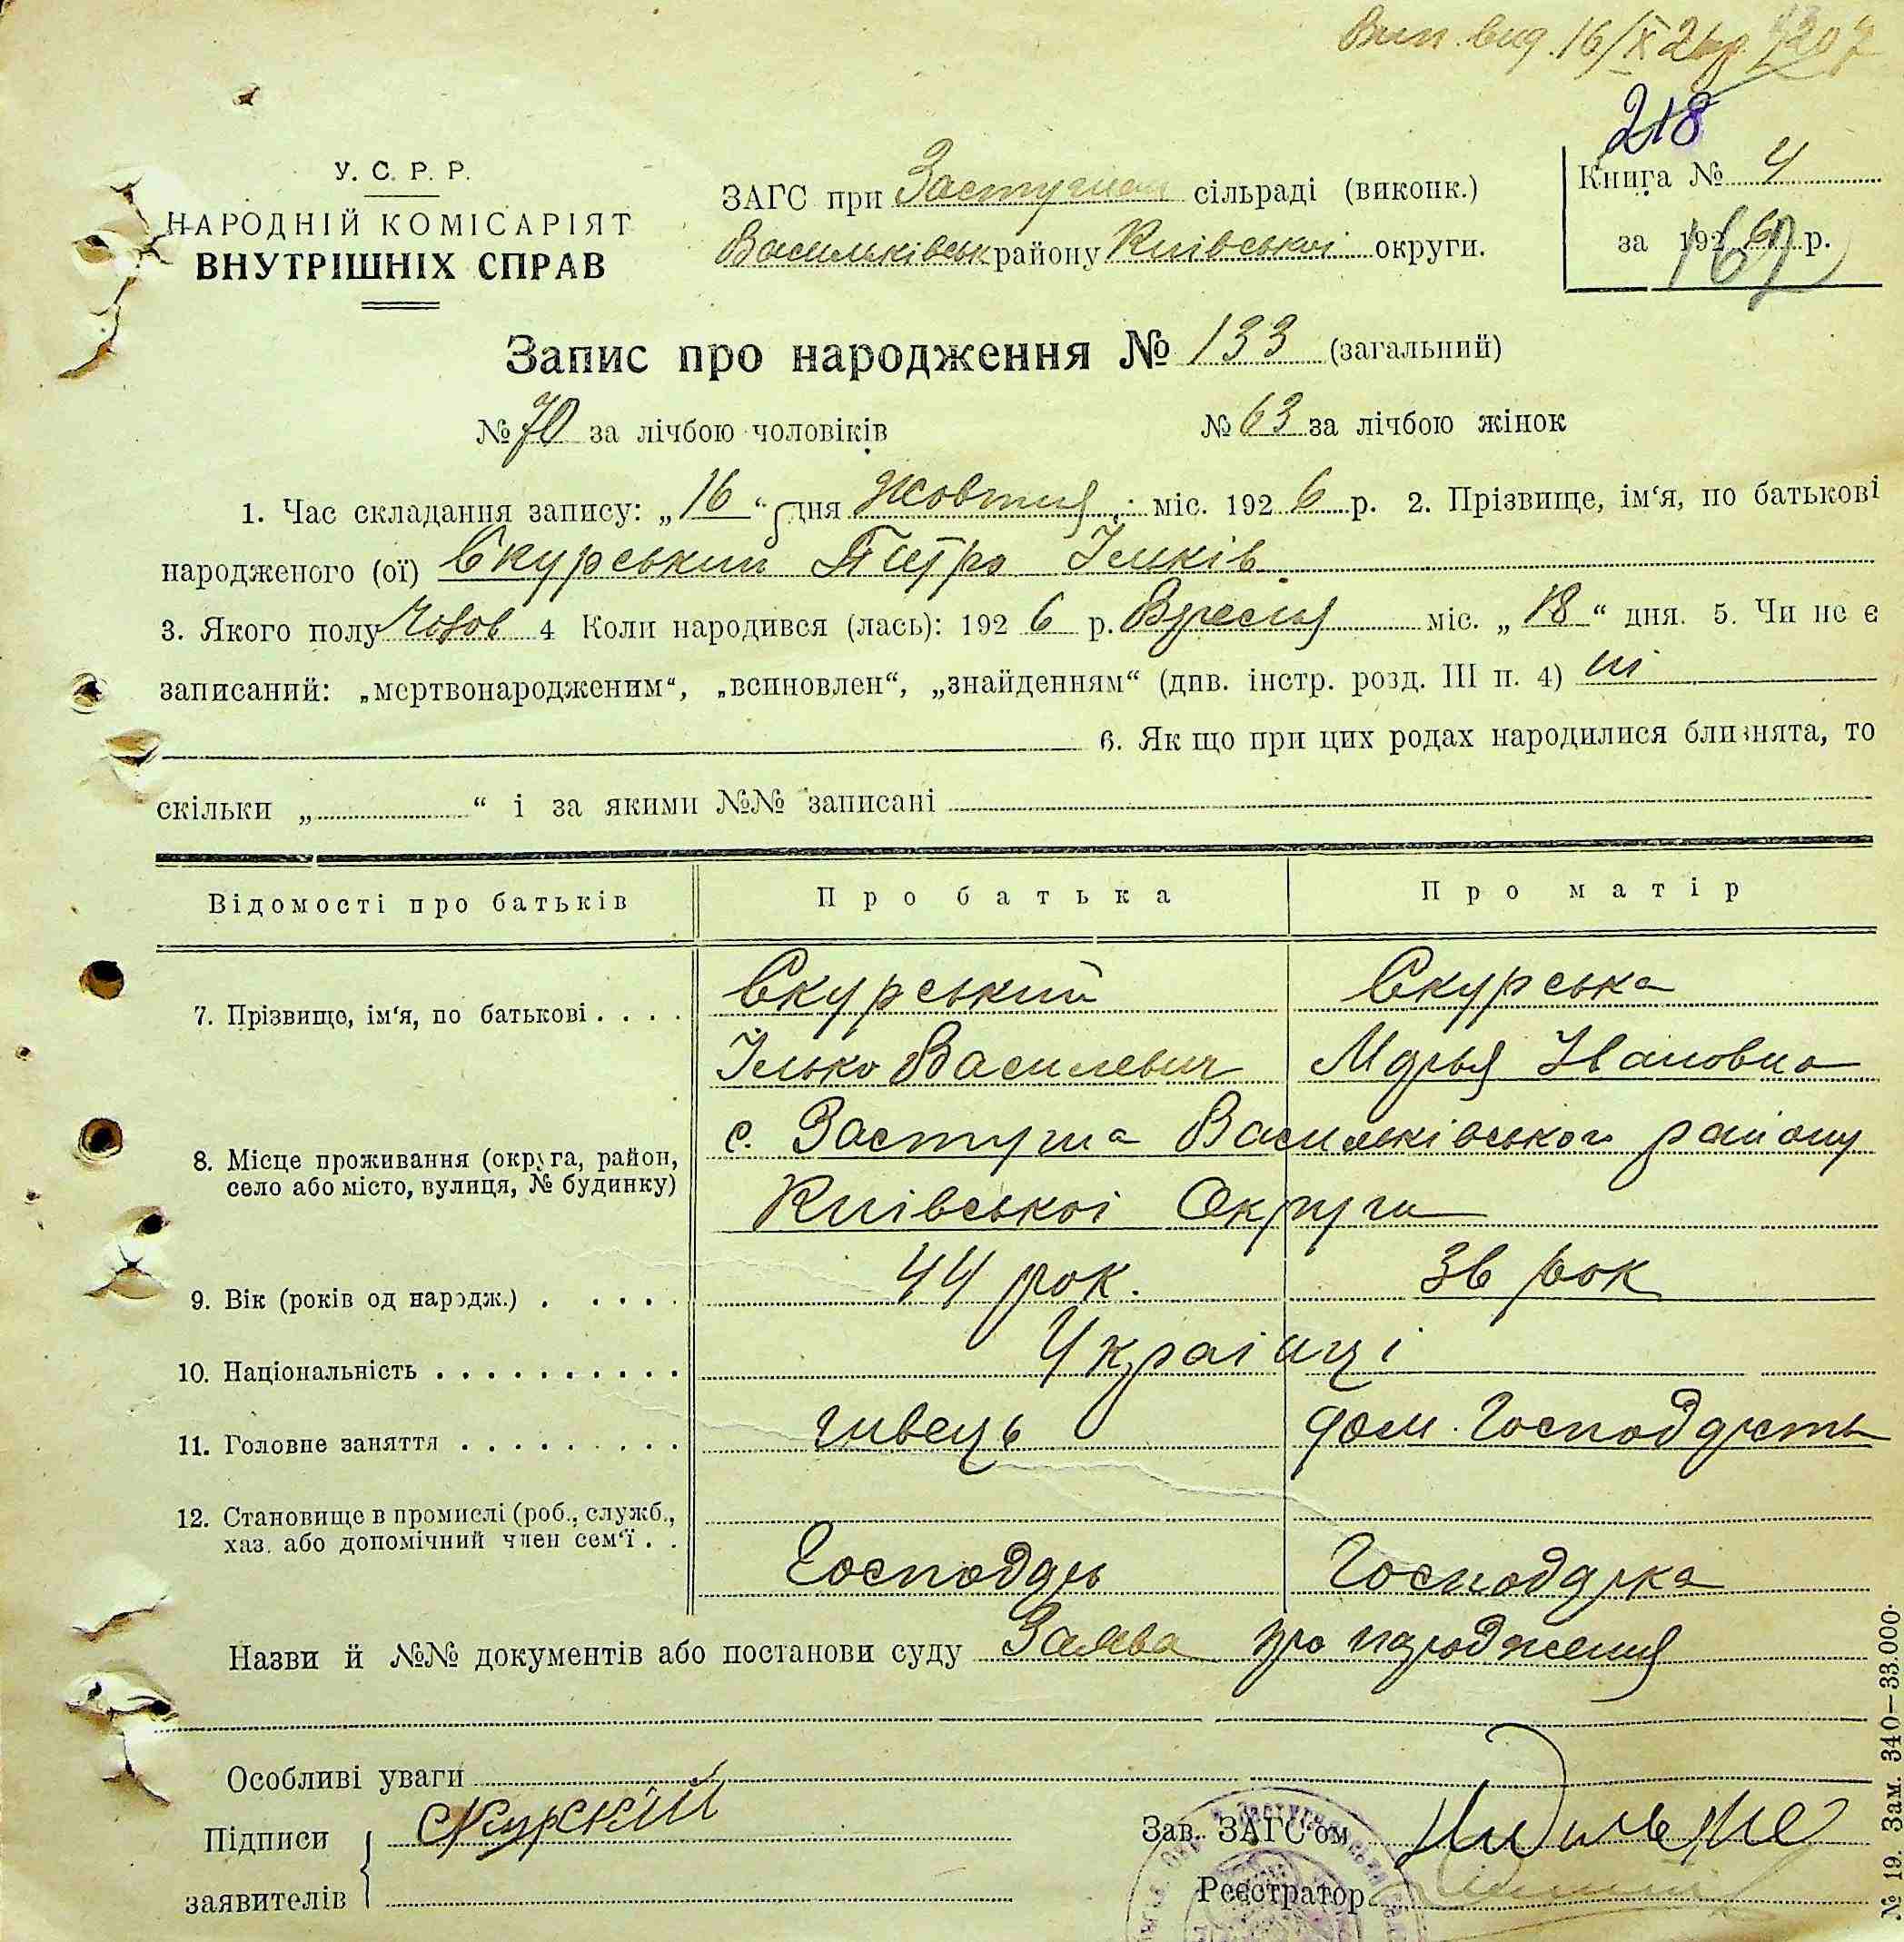 Вип. вид. 16/X 26р.
218
У. С. Р. Р.
НАРОДНІЙ КОМІСАРІЯТ
ВНУТРІШНІХ СПРАВ
ЗАГС при Застугнян сільраді (виконк.)
Васильківськ району Київської округи.
Книга № 4
за 1926 р.
162
Запис про народження № 133 (загальний)
№ 70 за лічбою чоловіків № 63 за лічбою жінок
1. Час складання запису: „16“ дня Жовтня міс. 1926 р. 2. Прізвище, ім‘я, по батькові
народженого (ої) Скурський Петро Ільків
3. Якого полу Чолов 4 Коли народився (лась): 1926 р. Вресня міс. „18“ дня. 5. Чи не є
записаний: „мертвонародженим“, „всиновлен“, „знайденням“ (див. інстр. розд. III п. 4) ні
6. Як що при цих родах народилися близнята, то
скільки „ “ і за якими №№ записані
Відомості про батьків Про батька Про матір
7. Прізвище, ім‘я, по батькові . . . . Скурський Скурська
Ілько Василевич Марья Івановна
8. Місце проживання (округа, район, с. Застугна Васильківського району
село або місто, вулиця, № будинку) Київської Округи
9. Вік (років од народж.) . . . . . 44 рок. 36 рок
10. Національність . . . . . . . . . . Українці
11. Головне заняття . . . . . . . . . швець дом. Господарсть
12. Становище в промислі (роб., служб.,
хаз. або допомічний член сем‘ї . . Господарь Господарка
Назви й №№ документів або постанови суду Заява про народження
Особливі уваги
Підписи Скурский
заявителів
Зав. ЗАГС‘ом
Реєстратор
№ 19. Зам. 340—33.000.